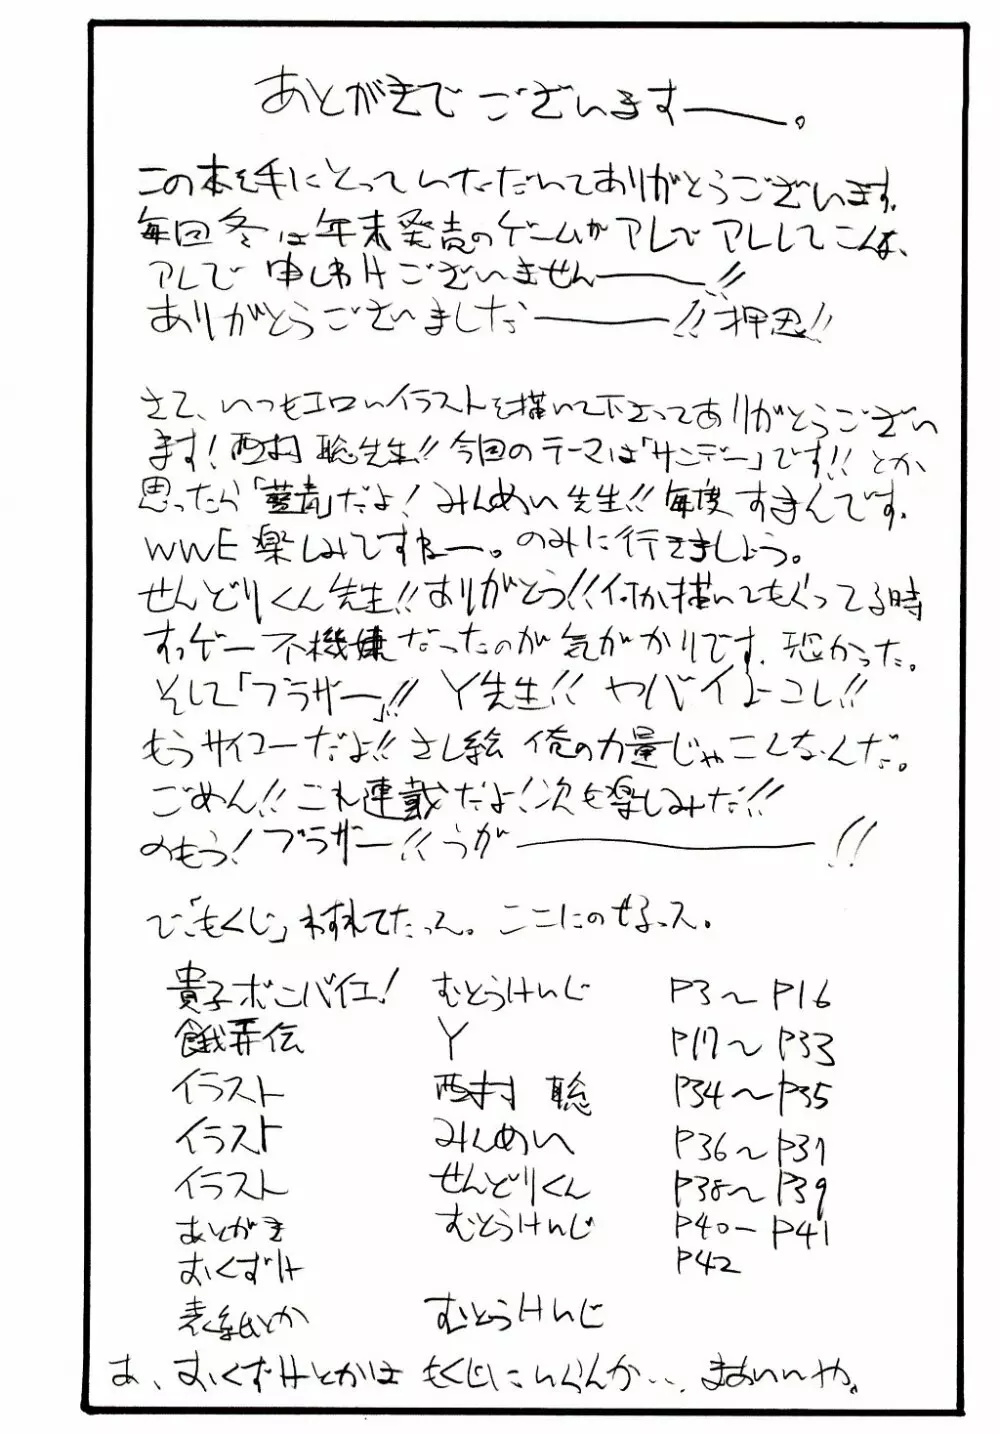 あとがきでございますー。
この本を手にとっていただいてありがとうございます。
毎回冬は年末発売のゲームがアレでアレしてこんな、
アレで申しわけございませんー!!
ありがとうございましたー!!押忍!!
さて、いつもエロいイラストを描いて下さってありがとうござい
ます!西村聡先生!!今回のテーマは「サンデー」です!!とか
思ったら「藍青」だよ!みんめい先生!!毎度すまんです。
WWE楽しみですねー。のみに行きましょう。
せんどりくん先生!!ありがとう!!何か描いてもらってる時
すっげー不機嫌だったのが気がかりです。恐かった。
そして「ブラザー」!!Y先生!!ヤバイよコレ!!
もうサイコーだよ!!さし絵 俺の力量じゃこんなんだ。
ごめん!!これ連載だよ!次も楽しみだ!!
のもう!ブラザー!!うがー!!
で「もくじ」わすれてたっス。ここにのせるっス。
貴子ボンバイエ! むとうけいじ P3～P16
餓弄伝 Y P17～P33
イラスト 西村 聡 P34～P35
イラスト みんめい P36～P37
イラスト せんどりくん P38～P39
あとがき むとうけいじ P40－P41
おくずけ P42
表紙とか むとうけいじ
あ、おくずけとかは もくじにいらんか… まあいいや。